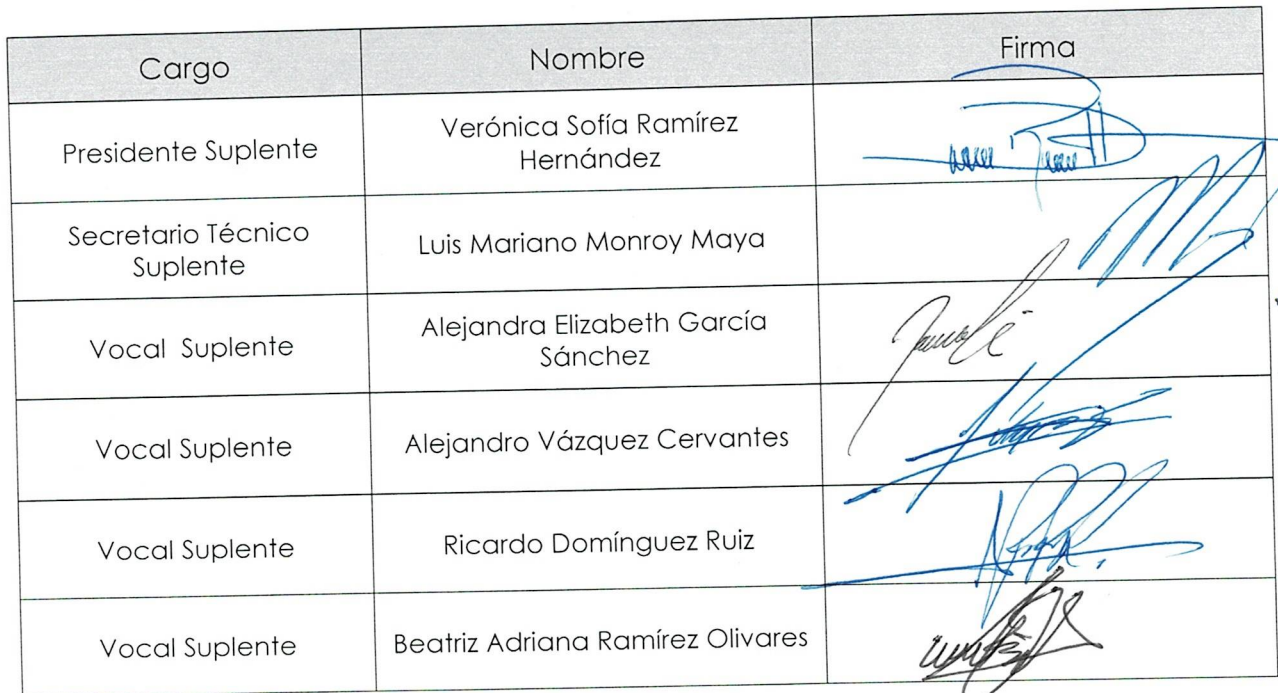 Cargo
Nombre
Firma
Presidente Suplente
Verónica Sofía Ramírez
Hernández
Secretario Técnico
Suplente
Luis Mariano Monroy Maya
Vocal Suplente
Alejandra Elizabeth García
Sánchez
Vocal Suplente
Alejandro Vázquez Cervantes
Vocal Suplente
Ricardo Domínguez Ruiz
Vocal Suplente
Beatriz Adriana Ramírez Olivares